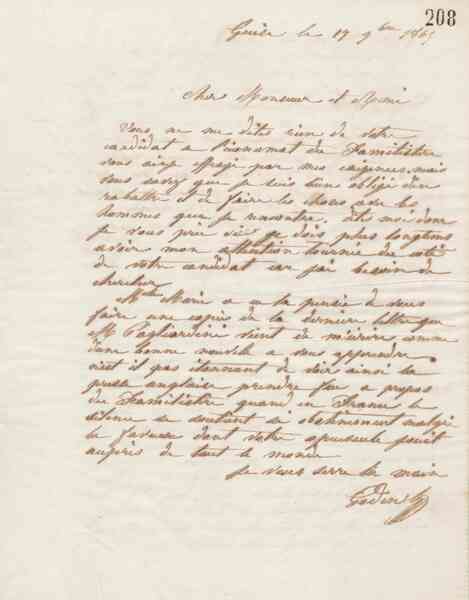 208
Guise le 17 9bre 1865
Cher Monsieur et Ami
Vous ne me dites rien de votre
candidat a l'économat du Familistère
vous ai-je effrayé par mes exigences, mais
vous savez que je suis dans obligé d'en
rabattre et de faire les choses avec les
hommes que je rencontre, dites moi donc
je vous prie si je dois plus longtems
avoir mon attention tournée du coté
de votre candidat car j'ai besoin de
chercher
Melle Marie a eu la pensée de vous
faire une copie de la dernière lettre que
M Pagliardini vient de m'écrire comme
d'une bonne nouvelle a vous apprendre
n'est il pas étonnant de voir ainsi la
presse anglaise prendre feu a propos
du Familistère quand en France le
silence se soutient si obstinément malgré
la faveur dont votre opuscule jouit
auprès de tout le monde
Je vous serre la main
Godin